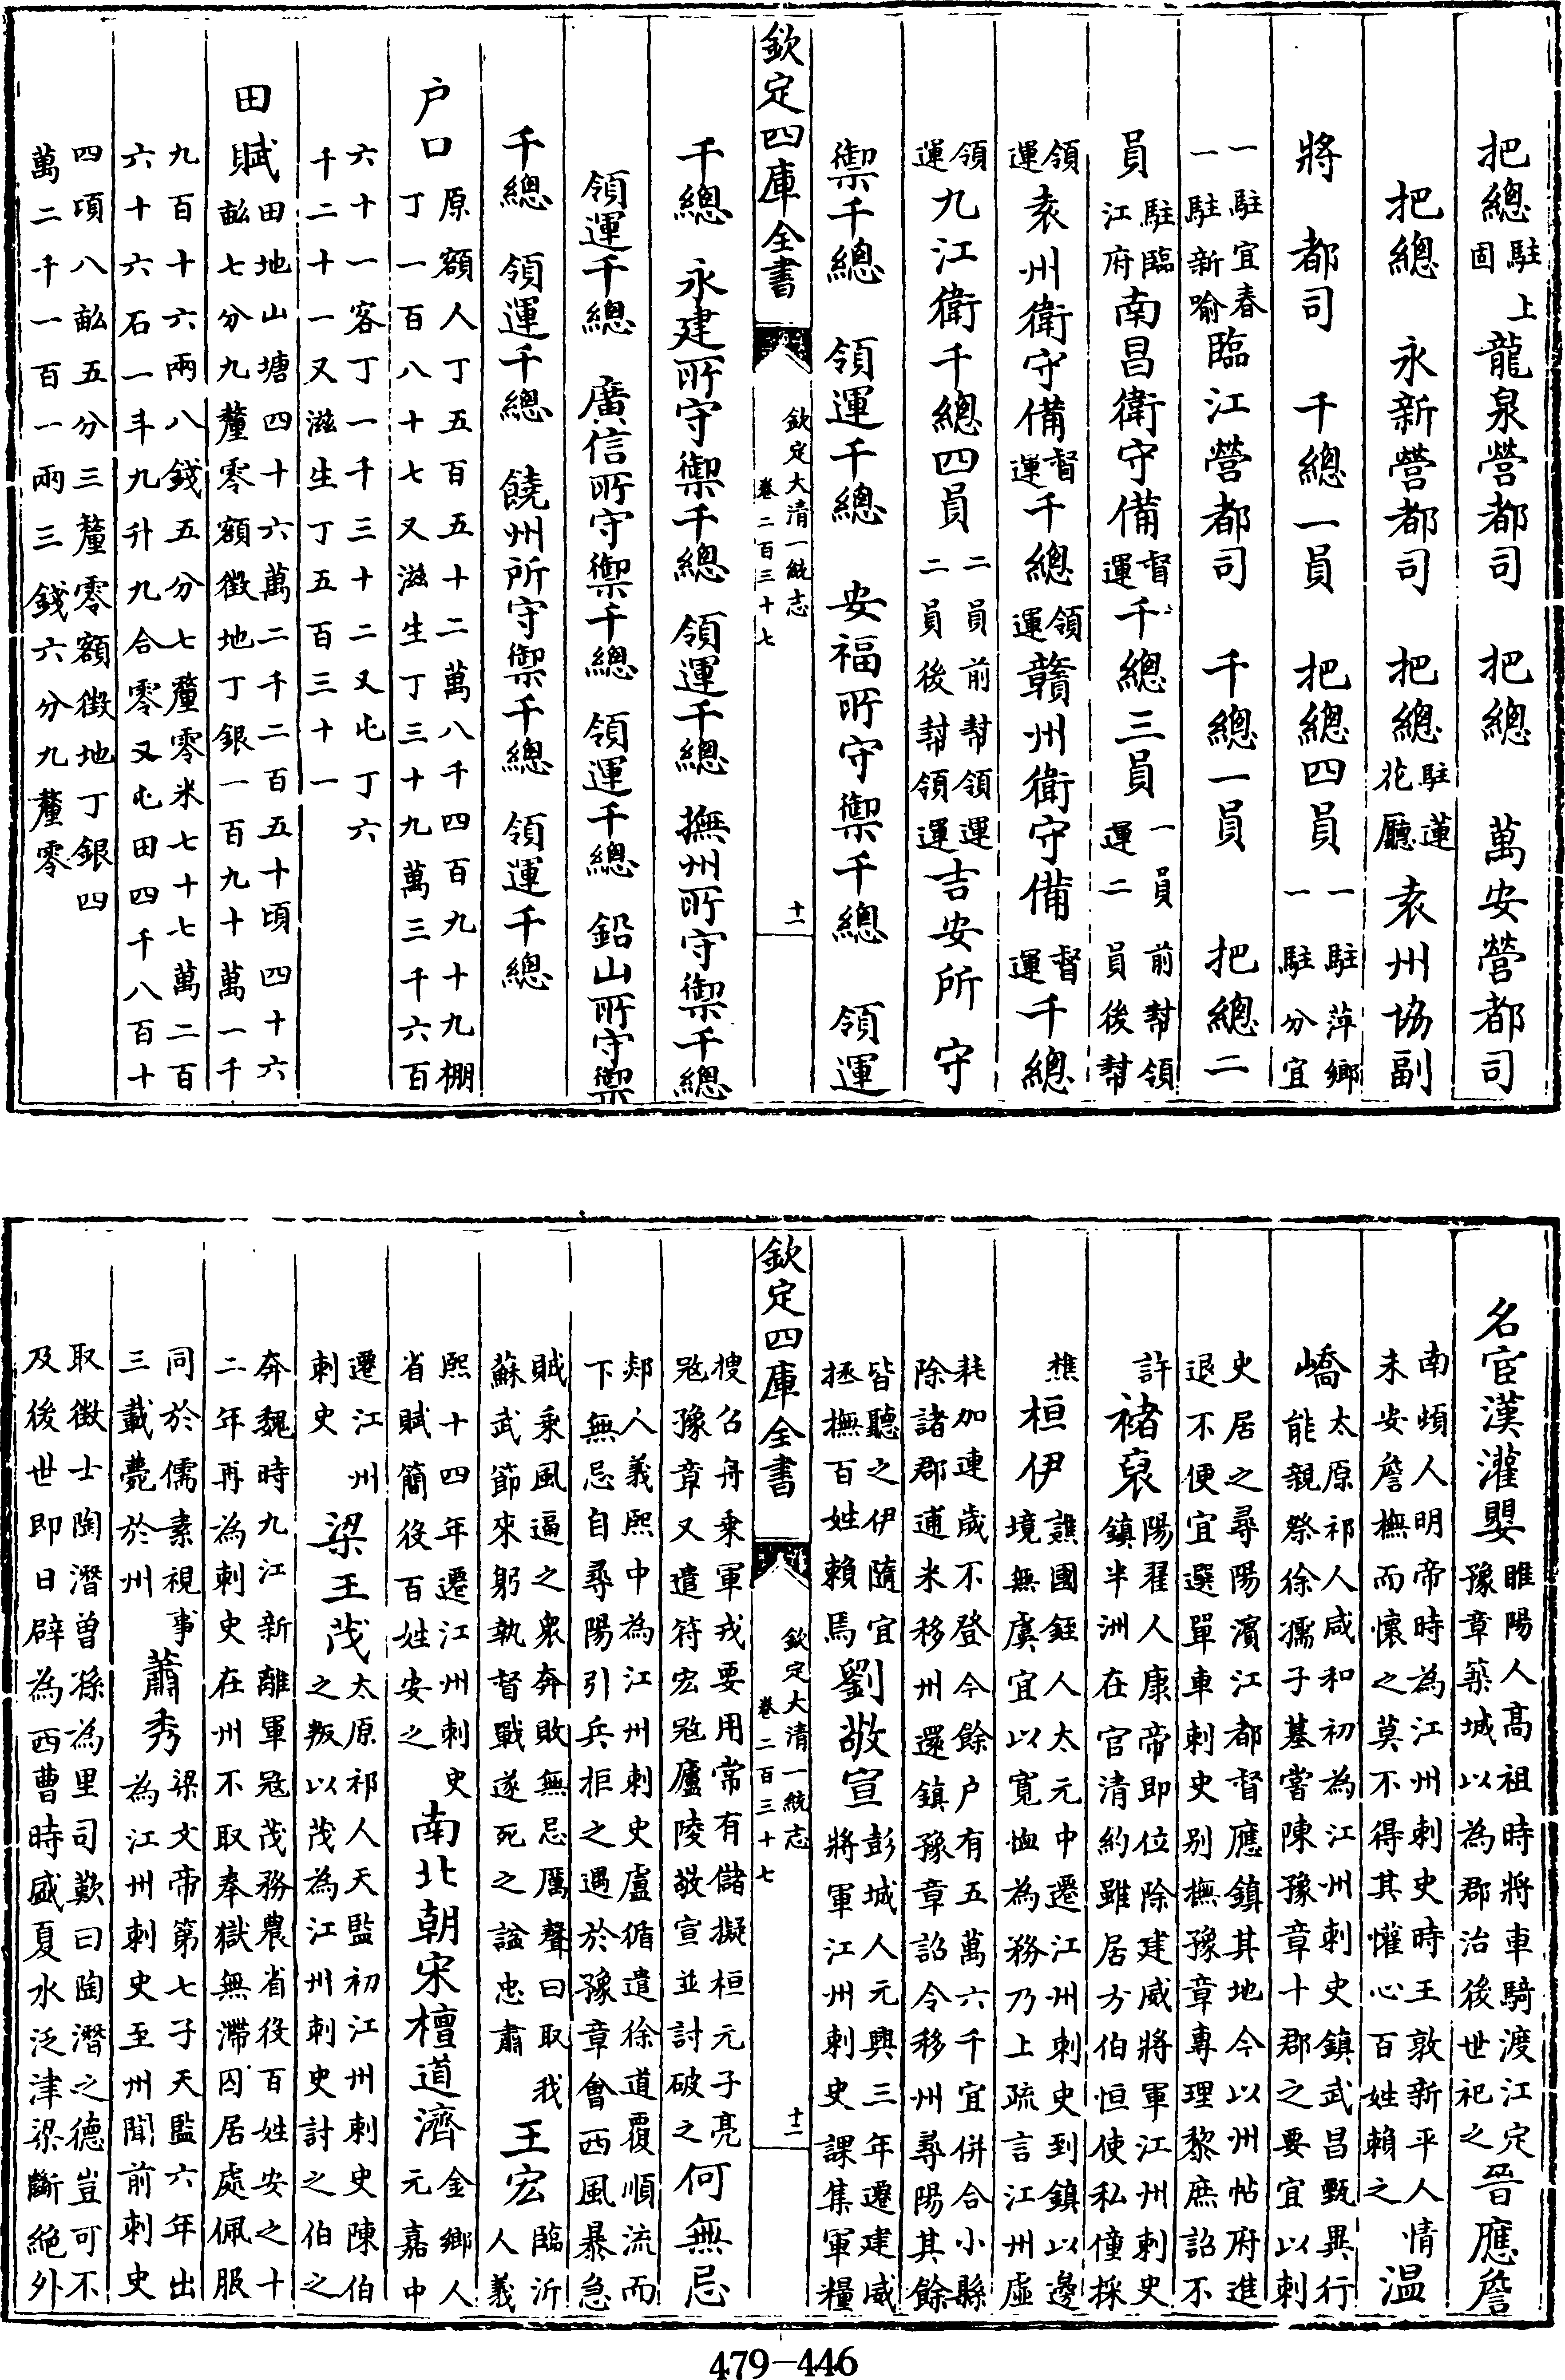 把總駐上固龍泉營都司　把總　萬安營都司
把總　永新營都司　把總駐蓮花廳袁州協副
將　都司　千總一員　把總四員一駐萍鄉一駐分宜
一駐宜春一駐新喻臨江營都司　千總一員　把總二
員駐臨江府南昌衛守備督運千總三員一員前幫領運二員後幫
領運袁州衛守備督運千總領運贛州衛守備督運千總
領運九江衛千總四員二員前幫領運二員後幫領運吉安所守
禦千總　領運千總　安福所守禦千總　領運
欽定四庫全書　欽定大清一統志卷二百三十七　十一
千總　永建所守禦千總　領運千總　撫州所守禦千總
領運千總　廣信所守禦千總　領運千總　鉛山所守禦
千總　領運千總　饒州所守禦千總　領運千總
户口原額人丁五百五十二萬八千四百九十九棚丁一百八十七又滋生丁三十九萬三千六百
六十一客丁一千三十二又屯丁六千二十一又滋生丁五百三十一
田賦田地山塘四十六萬二千二百五十頃四十六畝七分九釐零額徵地丁銀一百九十萬一千
九百十六兩八錢五分七釐零米七十七萬二百六十六石一斗九升九合零又屯田四千八百十
四頃八畝五分三釐零額徵地丁銀四萬二千一百一兩三錢六分九釐零
名宦漢灌嬰睢陽人高祖時將車騎渡江定豫章築城以為郡治後世祀之晉應詹
南頓人明帝時為江州刺史時王敦新平人情未安詹撫而懷之莫不得其懽心百姓賴之温
嶠太原祁人咸和初為江州刺史鎮武昌甄異行能親祭徐孺子墓嘗陳豫章十郡之要宜以刺
史居之尋陽濱江都督應鎮其地今以州帖府進退不便宜選單車刺史别撫豫章專理黎庶詔不
許褚裒陽翟人康帝即位除建威將軍江州刺史鎮半洲在官清約雖居方伯恒使私僮採
樵桓伊譙國銍人太元中遷江州刺史到鎮以邊境無虞宜以寛恤為務乃上疏言江州虛
耗加連歲不登今餘户有五萬六千宜併合小縣除諸郡逋米移州還鎮豫章詔令移州尋陽其餘
皆聽之伊隨宜拯撫百姓賴焉劉敬宣彭城人元興三年遷建威將軍江州刺史課集軍糧
欽定四庫全書　欽定大清一統志卷二百三十七　十二
搜召舟乗軍戎要用常有儲擬桓元子亮宼豫章又遣符宏宼廬陵敬宣並討破之何無忌
郯人義熙中為江州刺史盧循遣徐道覆順流而下無忌自尋陽引兵拒之遇於豫章會西風暴急
賊乗風逼之衆奔敗無忌厲聲曰取我蘇武節來躬執督戰遂死之諡忠肅王宏臨沂人義
熙十四年遷江州刺史省賦簡役百姓安之南北朝宋檀道濟金鄉人元嘉中
遷江州刺史梁王茂太原祁人天監初江州刺史陳伯之叛以茂為江州刺史討之伯之
奔魏時九江新離軍宼茂務農省役百姓安之十二年再為刺史在州不取奉獄無滯囚居處佩服
同於儒素視事三載薨於州蕭秀梁文帝第七子天監六年出為江州刺史至州聞前刺史
取徵士陶潛曾孫為里司歎曰陶潛之德豈可不及後世即日辟為西曹時盛夏水泛津梁斷絶外
479-446